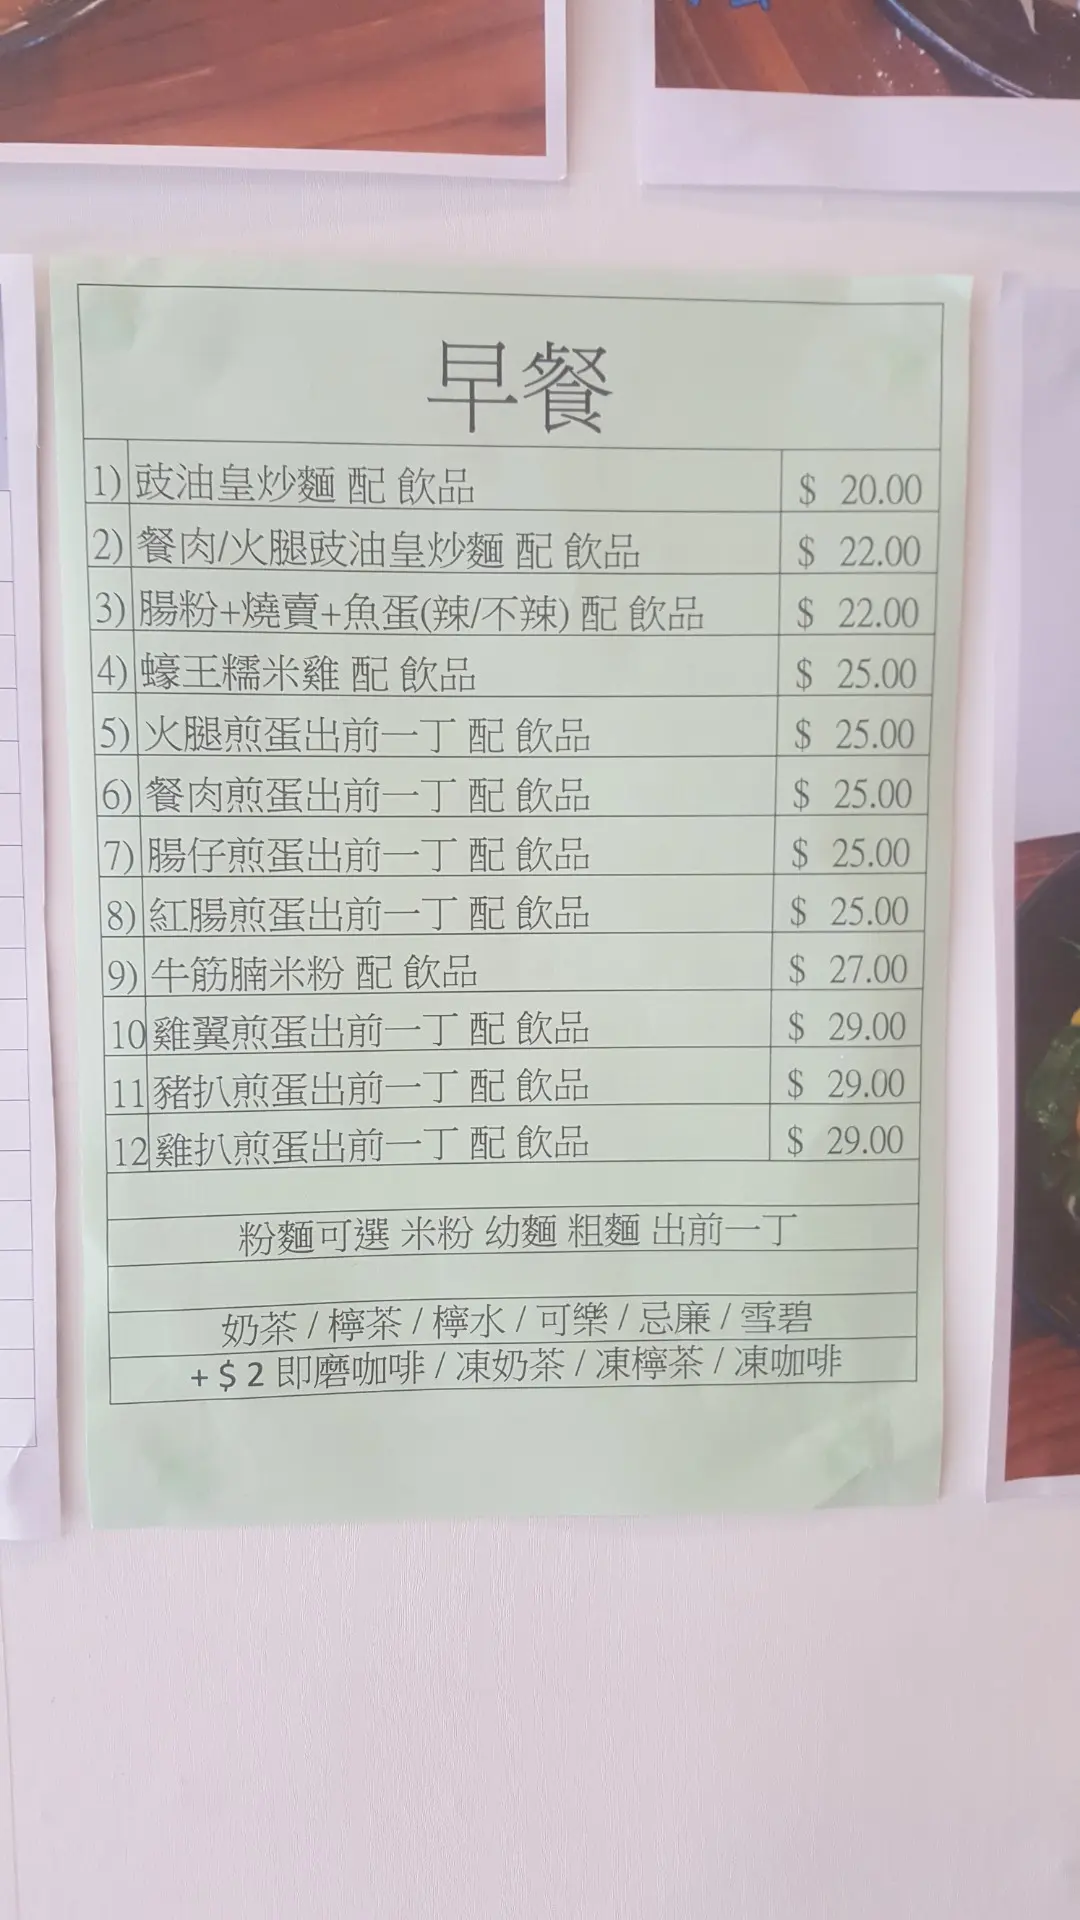 早餐
1) 豉油皇炒麵 配 飲品 $ 20.00
2) 餐肉/火腿豉油皇炒麵 配 飲品 $ 22.00
3) 腸粉+燒賣+魚蛋(辣/不辣) 配 飲品 $ 22.00
4) 蠔王糯米雞 配 飲品 $ 25.00
5) 火腿煎蛋出前一丁 配 飲品 $ 25.00
6) 餐肉煎蛋出前一丁 配 飲品 $ 25.00
7) 腸仔煎蛋出前一丁 配 飲品 $ 25.00
8) 紅腸煎蛋出前一丁 配 飲品 $ 25.00
9) 牛筋腩米粉 配 飲品 $ 27.00
10 雞翼煎蛋出前一丁 配 飲品 $ 29.00
11 豬扒煎蛋出前一丁 配 飲品 $ 29.00
12 雞扒煎蛋出前一丁 配 飲品 $ 29.00
粉麵可選 米粉 幼麵 粗麵 出前一丁
奶茶 / 檸茶 / 檸水 / 可樂 / 忌廉 / 雪碧
+ $ 2 即磨咖啡 / 凍奶茶 / 凍檸茶 / 凍咖啡